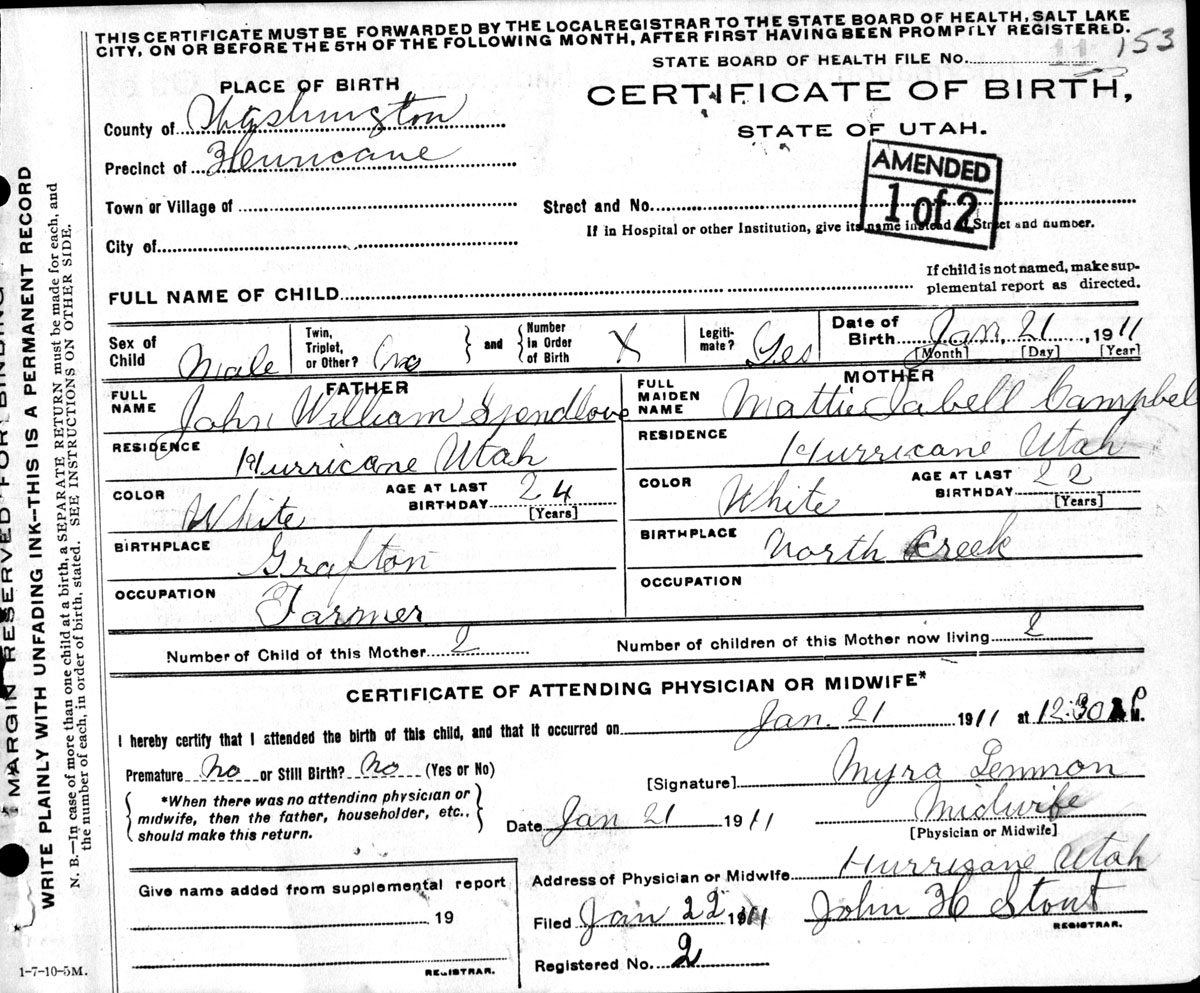 THIS CERTIFICATE MUST BE FORWARDED BY THE LOCAL REGISTRAR TO THE STATE BOARD OF HEALTH, SALT LAKE
CITY, ON OR BEFORE THE 5TH OF THE FOLLOWING MONTH, AFTER FIRST HAVING BEEN PROMPTLY REGISTERED.
STATE BOARD OF HEALTH FILE NO. 11 153
PLACE OF BIRTH
CERTIFICATE OF BIRTH,
STATE OF UTAH.
County of Washington
Precinct of Hurricane
AMENDED
1 of 2
Town or Village of
Street and No.
If in Hospital or other Institution, give its name instead of Street and number.
City of
If child is not named, make sup-
plemental report as directed.
FULL NAME OF CHILD
Sex of Child Male Twin, Triplet, or Other? and Number in Order of Birth X Legiti- mate? Yes Date of Birth Jan. 21, 1911
[Month] [Day] [Year]
FATHER MOTHER
FULL NAME John William Spendlove FULL MAIDEN NAME Mattie Isabell Campbel
RESIDENCE Hurricane Utah RESIDENCE Hurricane Utah
COLOR White AGE AT LAST BIRTHDAY 24 [Years] COLOR White AGE AT LAST BIRTHDAY 22 [Years]
BIRTHPLACE Grafton BIRTHPLACE North Creek
OCCUPATION Farmer OCCUPATION
Number of Child of this Mother 2 Number of children of this Mother now living 2
CERTIFICATE OF ATTENDING PHYSICIAN OR MIDWIFE*
I hereby certify that I attended the birth of this child, and that it occurred on Jan. 21 1911 at 12:30 P M.
Premature No or Still Birth? No (Yes or No)
[Signature] Myra Lemmon
*When there was no attending physician or
midwife, then the father, householder, etc.,
should make this return.
Date Jan 21 1911 Midwife
[Physician or Midwife]
Give name added from supplemental report
19
REGISTRAR.
Address of Physician or Midwife Hurricane Utah
Filed Jan 22 1911 John H Stout
REGISTRAR.
Registered No. 2
1-7-10-5M.
MARGIN RESERVED FOR BINDING
WRITE PLAINLY WITH UNFADING INK—THIS IS A PERMANENT RECORD
N. B.—In case of more than one child at a birth, a SEPARATE RETURN must be made for each, and
the number of each, in order of birth, stated. SEE INSTRUCTIONS ON OTHER SIDE.